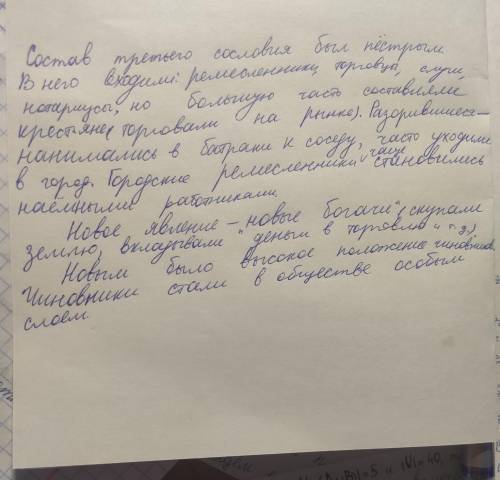 Состав третьего сословия был пёстрым
В него входили: ремесленники, торговцы, слуги,
нотариусы, но большую часть составляли
крестьяне (торговали на рынке). Разорившиеся –
нанимались в батраки к соседу, часто уходили
в город. Городские ремесленники чаще становились
наёмными работниками.
Новое явление – "новые богачи", скупали
землю, вкладывали деньги в торговлю и т.д.)
Новым было высокое положение чиновников.
Чиновники стали в обществе особым
слоем.